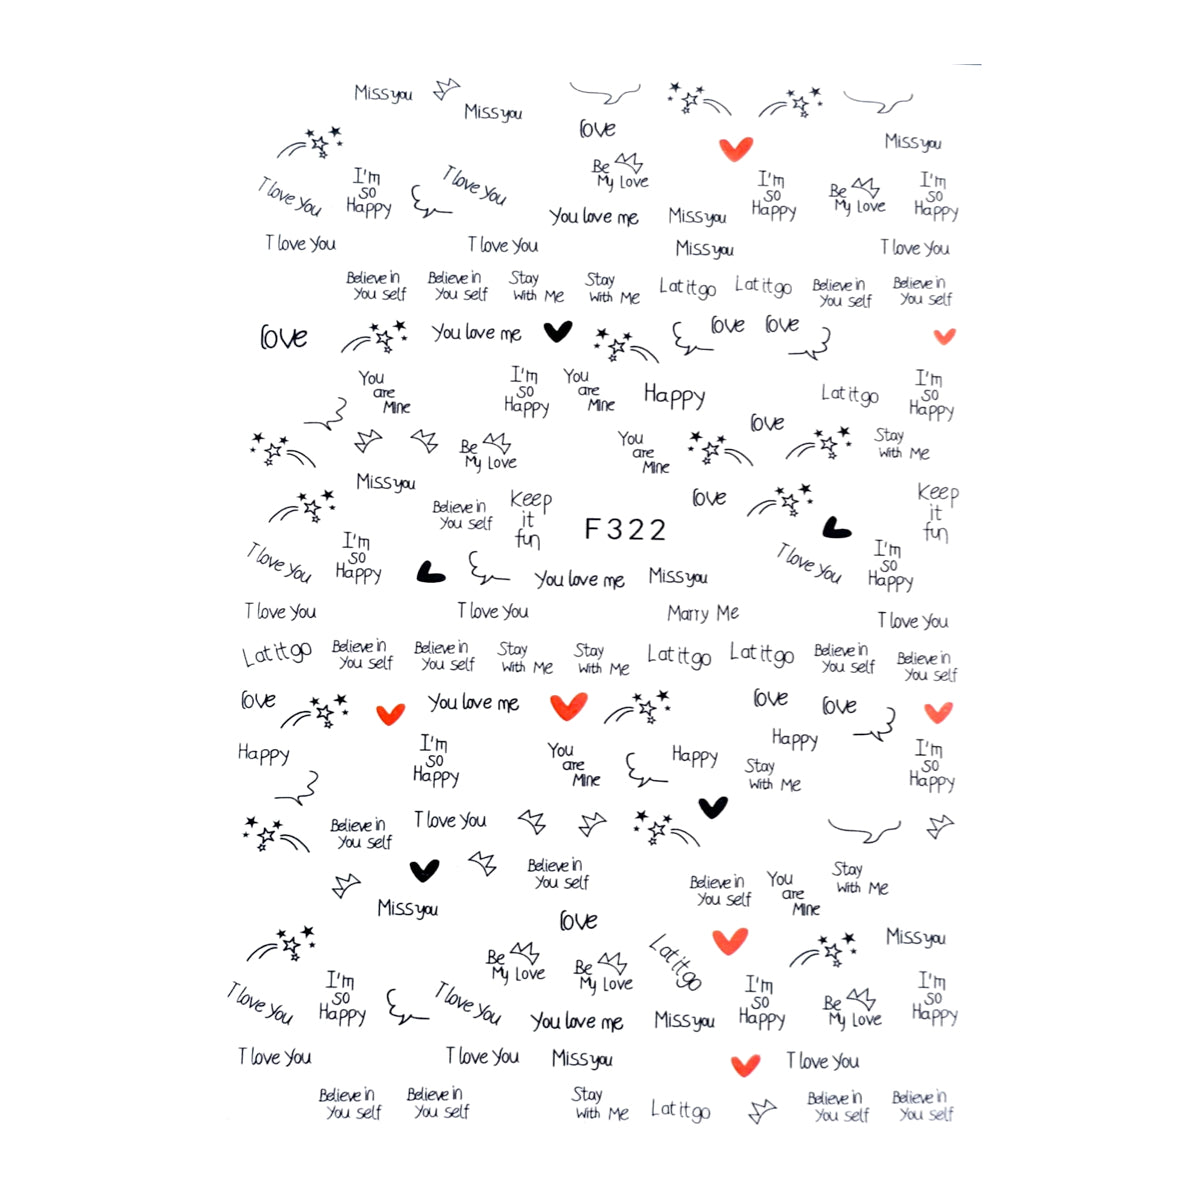 Miss you
Miss you
love
Miss you
Be
My Love
I'm
so
Happy
I love You
I love You
I'm
so
Happy
Be
My Love
I'm
so
Happy
You love me
Miss you
I love You
I love You
Miss you
I love You
Believe in
You self
Believe in
You self
Stay
With Me
Stay
With Me
Lat it go
Lat it go
Believe in
You self
Believe in
You self
love
You love me
love
love
You
are
Mine
I'm
so
Happy
You
are
Mine
Happy
Lat it go
I'm
so
Happy
love
Be
My Love
You
are
Mine
Stay
With Me
Miss you
Believe in
You self
Keep
it
fun
F322
love
Keep
it
fun
I love You
I'm
so
Happy
You love me
Miss you
I love You
I'm
so
Happy
I love You
I love You
Marry Me
I love You
Lat it go
Believe in
You self
Believe in
You self
Stay
With Me
Stay
With Me
Lat it go
Lat it go
Believe in
You self
Believe in
You self
love
You love me
love
love
Happy
I'm
so
Happy
You
are
Mine
Happy
Happy
Stay
With Me
I'm
so
Happy
Believe in
You self
I love You
Believe in
You self
Believe in
You self
You
are
Mine
Stay
With Me
Miss you
love
Miss you
Be
My Love
Be
My Love
Lat it go
I love You
I'm
so
Happy
I love You
You love me
Miss you
I'm
so
Happy
Be
My Love
I'm
so
Happy
I love You
I love You
Miss you
I love You
Believe in
You self
Believe in
You self
Stay
With Me
Lat it go
Believe in
You self
Believe in
You self